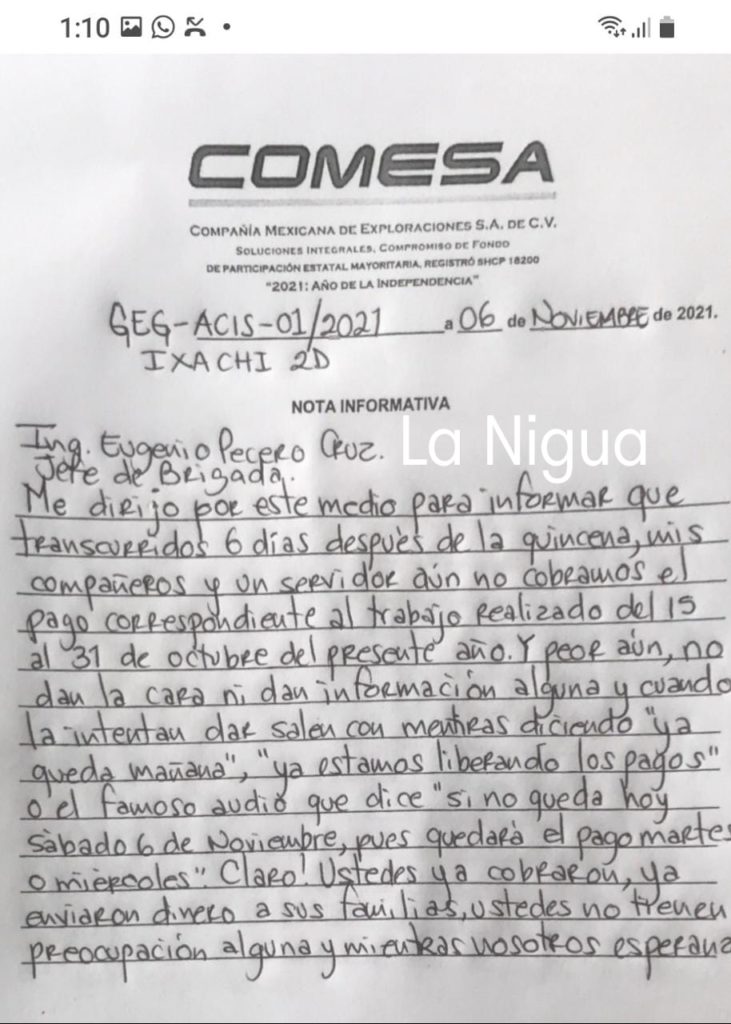 1:10
COMESA
COMPAÑÍA MEXICANA DE EXPLORACIONES S.A. DE C.V.
SOLUCIONES INTEGRALES, COMPROMISO DE FONDO
DE PARTICIPACIÓN ESTATAL MAYORITARIA, REGISTRÓ SHCP 18200
"2021: AÑO DE LA INDEPENDENCIA"
GEG-ACIS-01/2021 a 06 de NOVIEMBRE de 2021.
IXACHI 2D
NOTA INFORMATIVA
Ing. Eugenio Pecero Cruz.
La Nigua
Jefe de Brigada.
Me dirijo por este medio para informar que
transcurridos 6 días después de la quincena, mis
compañeros y un servidor aún no cobramos el
pago correspondiente al trabajo realizado del 15
al 31 de octubre del presente año. Y peor aún, no
dan la cara ni dan información alguna y cuando
la intentan dar salen con mentiras diciendo "ya
queda mañana", "ya estamos liberando los pagos"
o el famoso audio que dice "si no queda hoy
sàbado 6 de Noviembre, pues quedarà el pago martes
o mièrcoles". Claro! Ustedes ya cobraron, ya
enviaron dinero a sus familias, ustedes no tienen
preocupación alguna y mientras nosotros esperan